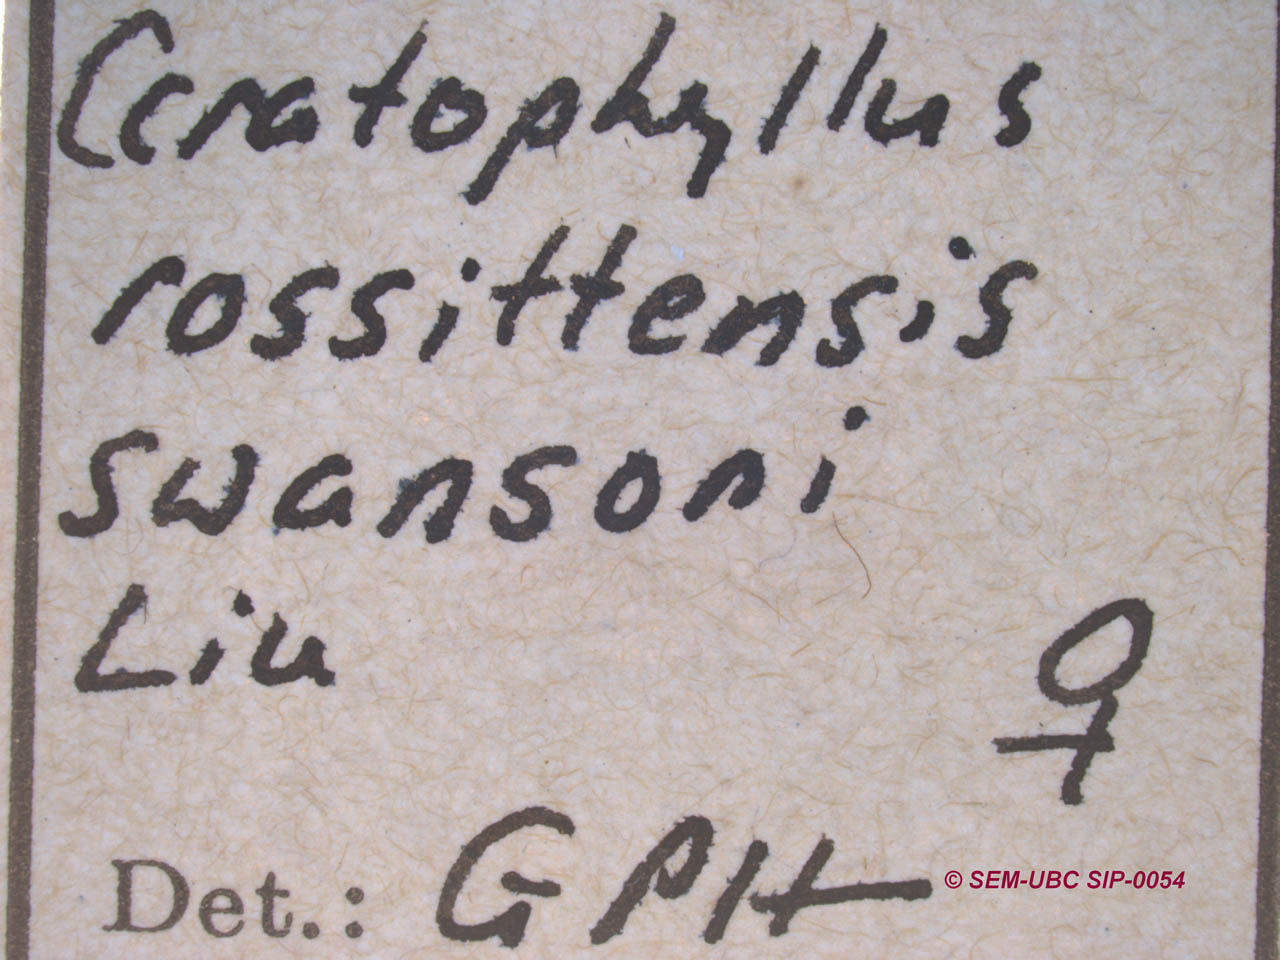 Ceratophyllus
rossittensis
swansoni
Liu
♀
Det.: GPH
© SEM-UBC SIP-0054